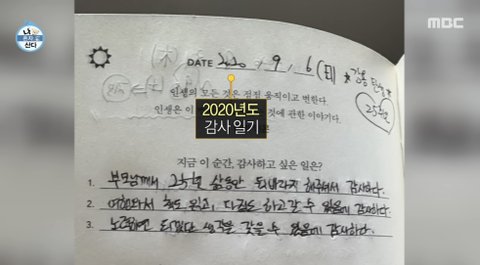 나 혼자 산다
MBC
DATE 2020. 9. 6 (日)
25번
2020년도
감사 일기
인생의 모든 것은 점점 움직이고 변한다.
인생은 이 것에 관한 이야기다.
지금 이 순간, 감사하고 싶은 일은?
1. 부모님께 25년 삶동안 뒷바라지 해주셔서 감사하다.
2. 여행와서 책도 읽고, 다짐도 하고갈 수 있음에 감사하다.
3. 노력하면 되겠단 생각을 갖을 수 있음에 감사하다.